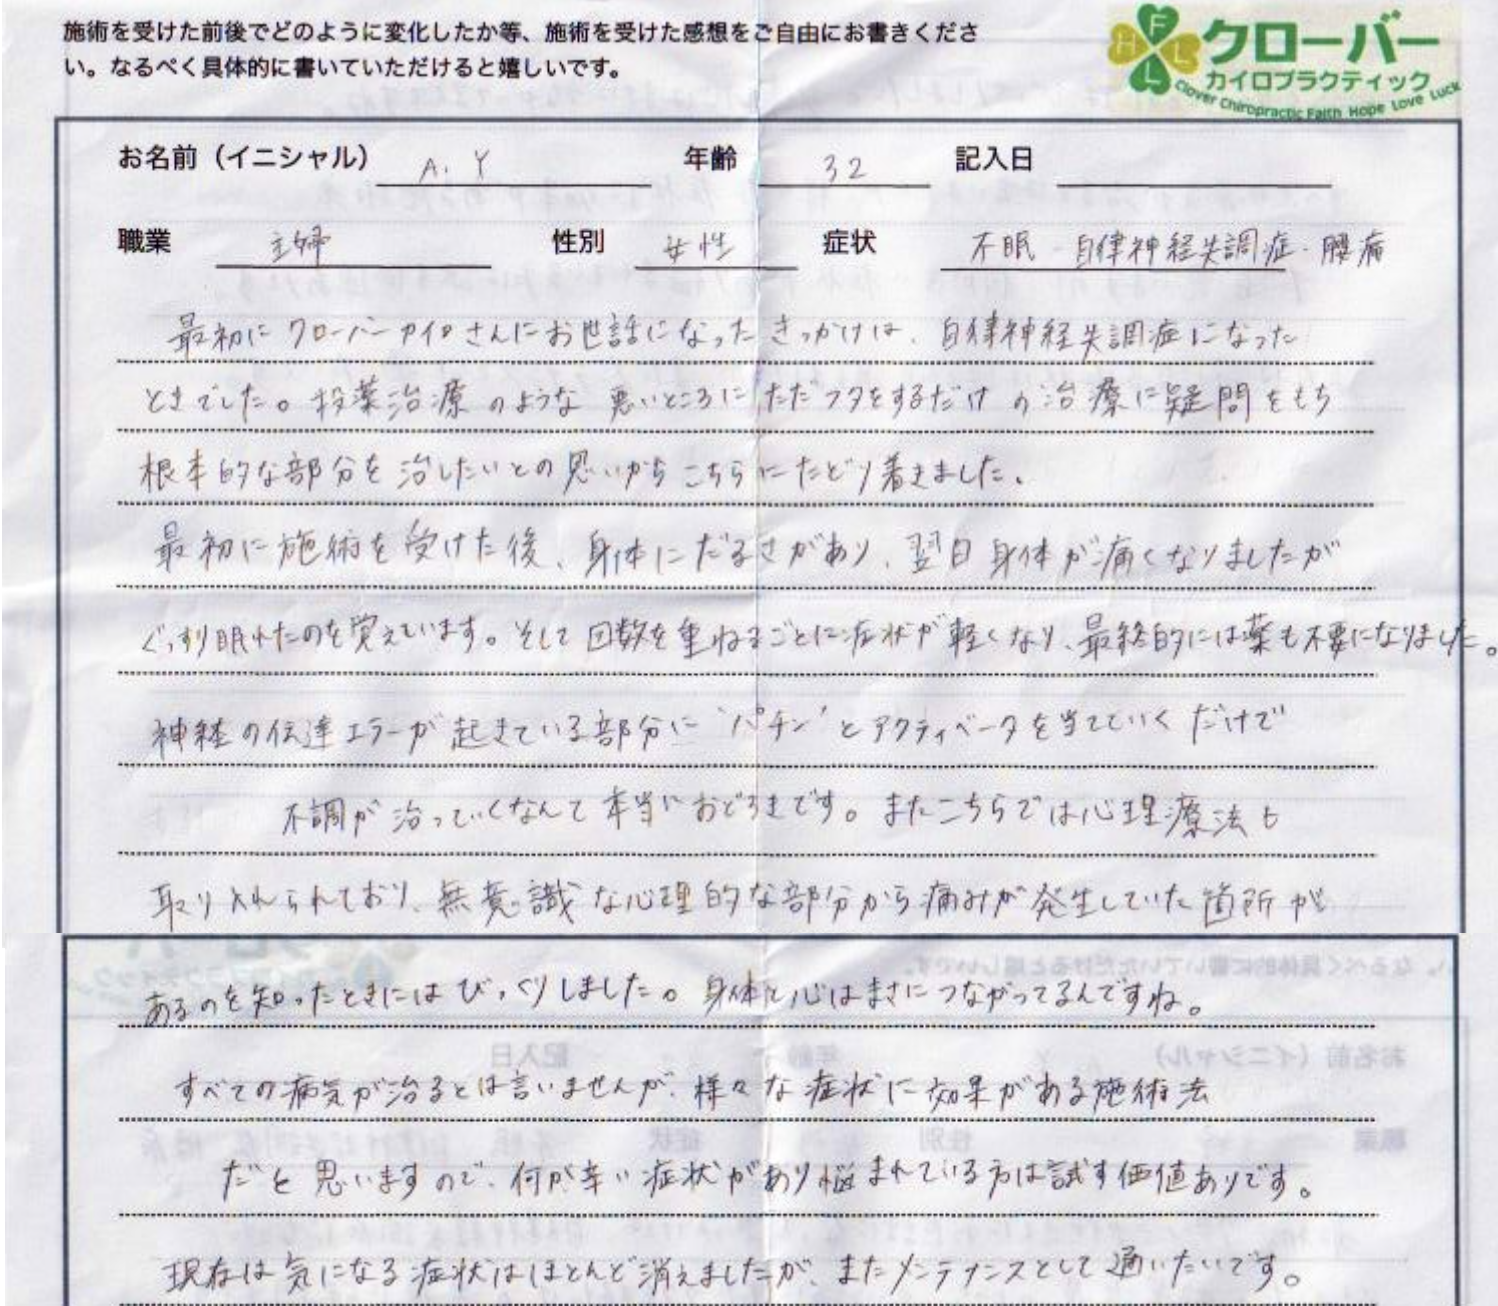 施術を受けた前後でどのように変化したか等、施術を受けた感想をご自由にお書きくださ
い。なるべく具体的に書いていただけると嬉しいです。
F H L L
クローバー
カイロプラクティック
Clover Chiropractic Faith Hope Love Luck
お名前（イニシャル） A.Y 年齢 32 記入日
職業 主婦 性別 女性 症状 不眠・自律神経失調症・腰痛
最初にクローバーカイロさんにお世話になったきっかけは、自律神経失調症になった
ときでした。投薬治療のような悪いところにただフタをするだけの治療に疑問をもち
根本的な部分を治したいとの思いからこちらにたどり着きました。
最初に施術を受けた後、身体にだるさがあり、翌日身体が痛くなりましたが
ぐっすり眠れたのを覚えています。そして回数を重ねるごとに症状が軽くなり、最終的には薬も不要になりました。
神経の伝達エラーが起きている部分に'パチン'とアクティベータを当てていくだけで
不調が治っていくなんて本当におどろきです。またこちらでは心理療法も
取り入れられており、無意識な心理的な部分から痛みが発生していた箇所が
あるのを知ったときにはびっくりしました。身体と心はまさにつながってるんですね。
すべての病気が治るとは言いませんが、様々な症状に効果がある施術法
だと思いますので、何か辛い症状があり悩まれている方は試す価値ありです。
現在は気になる症状はほとんど消えましたが、またメンテナンスとして通いたいです。